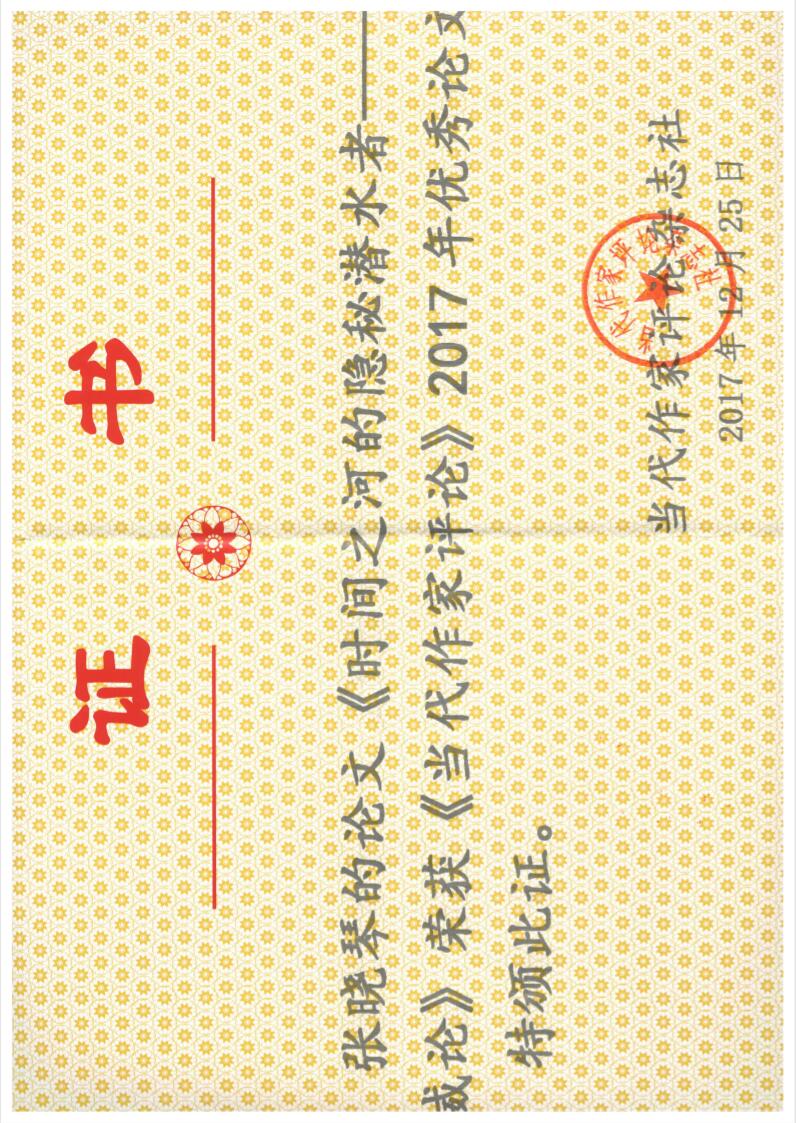 证 书
张晓琴的论文《时间之河的隐秘潜水者——
论》荣获《当代作家评论》2017年优秀论文
特颁此证。
当代作家评论杂志社
2017年12月25日
当代作家评论杂志社